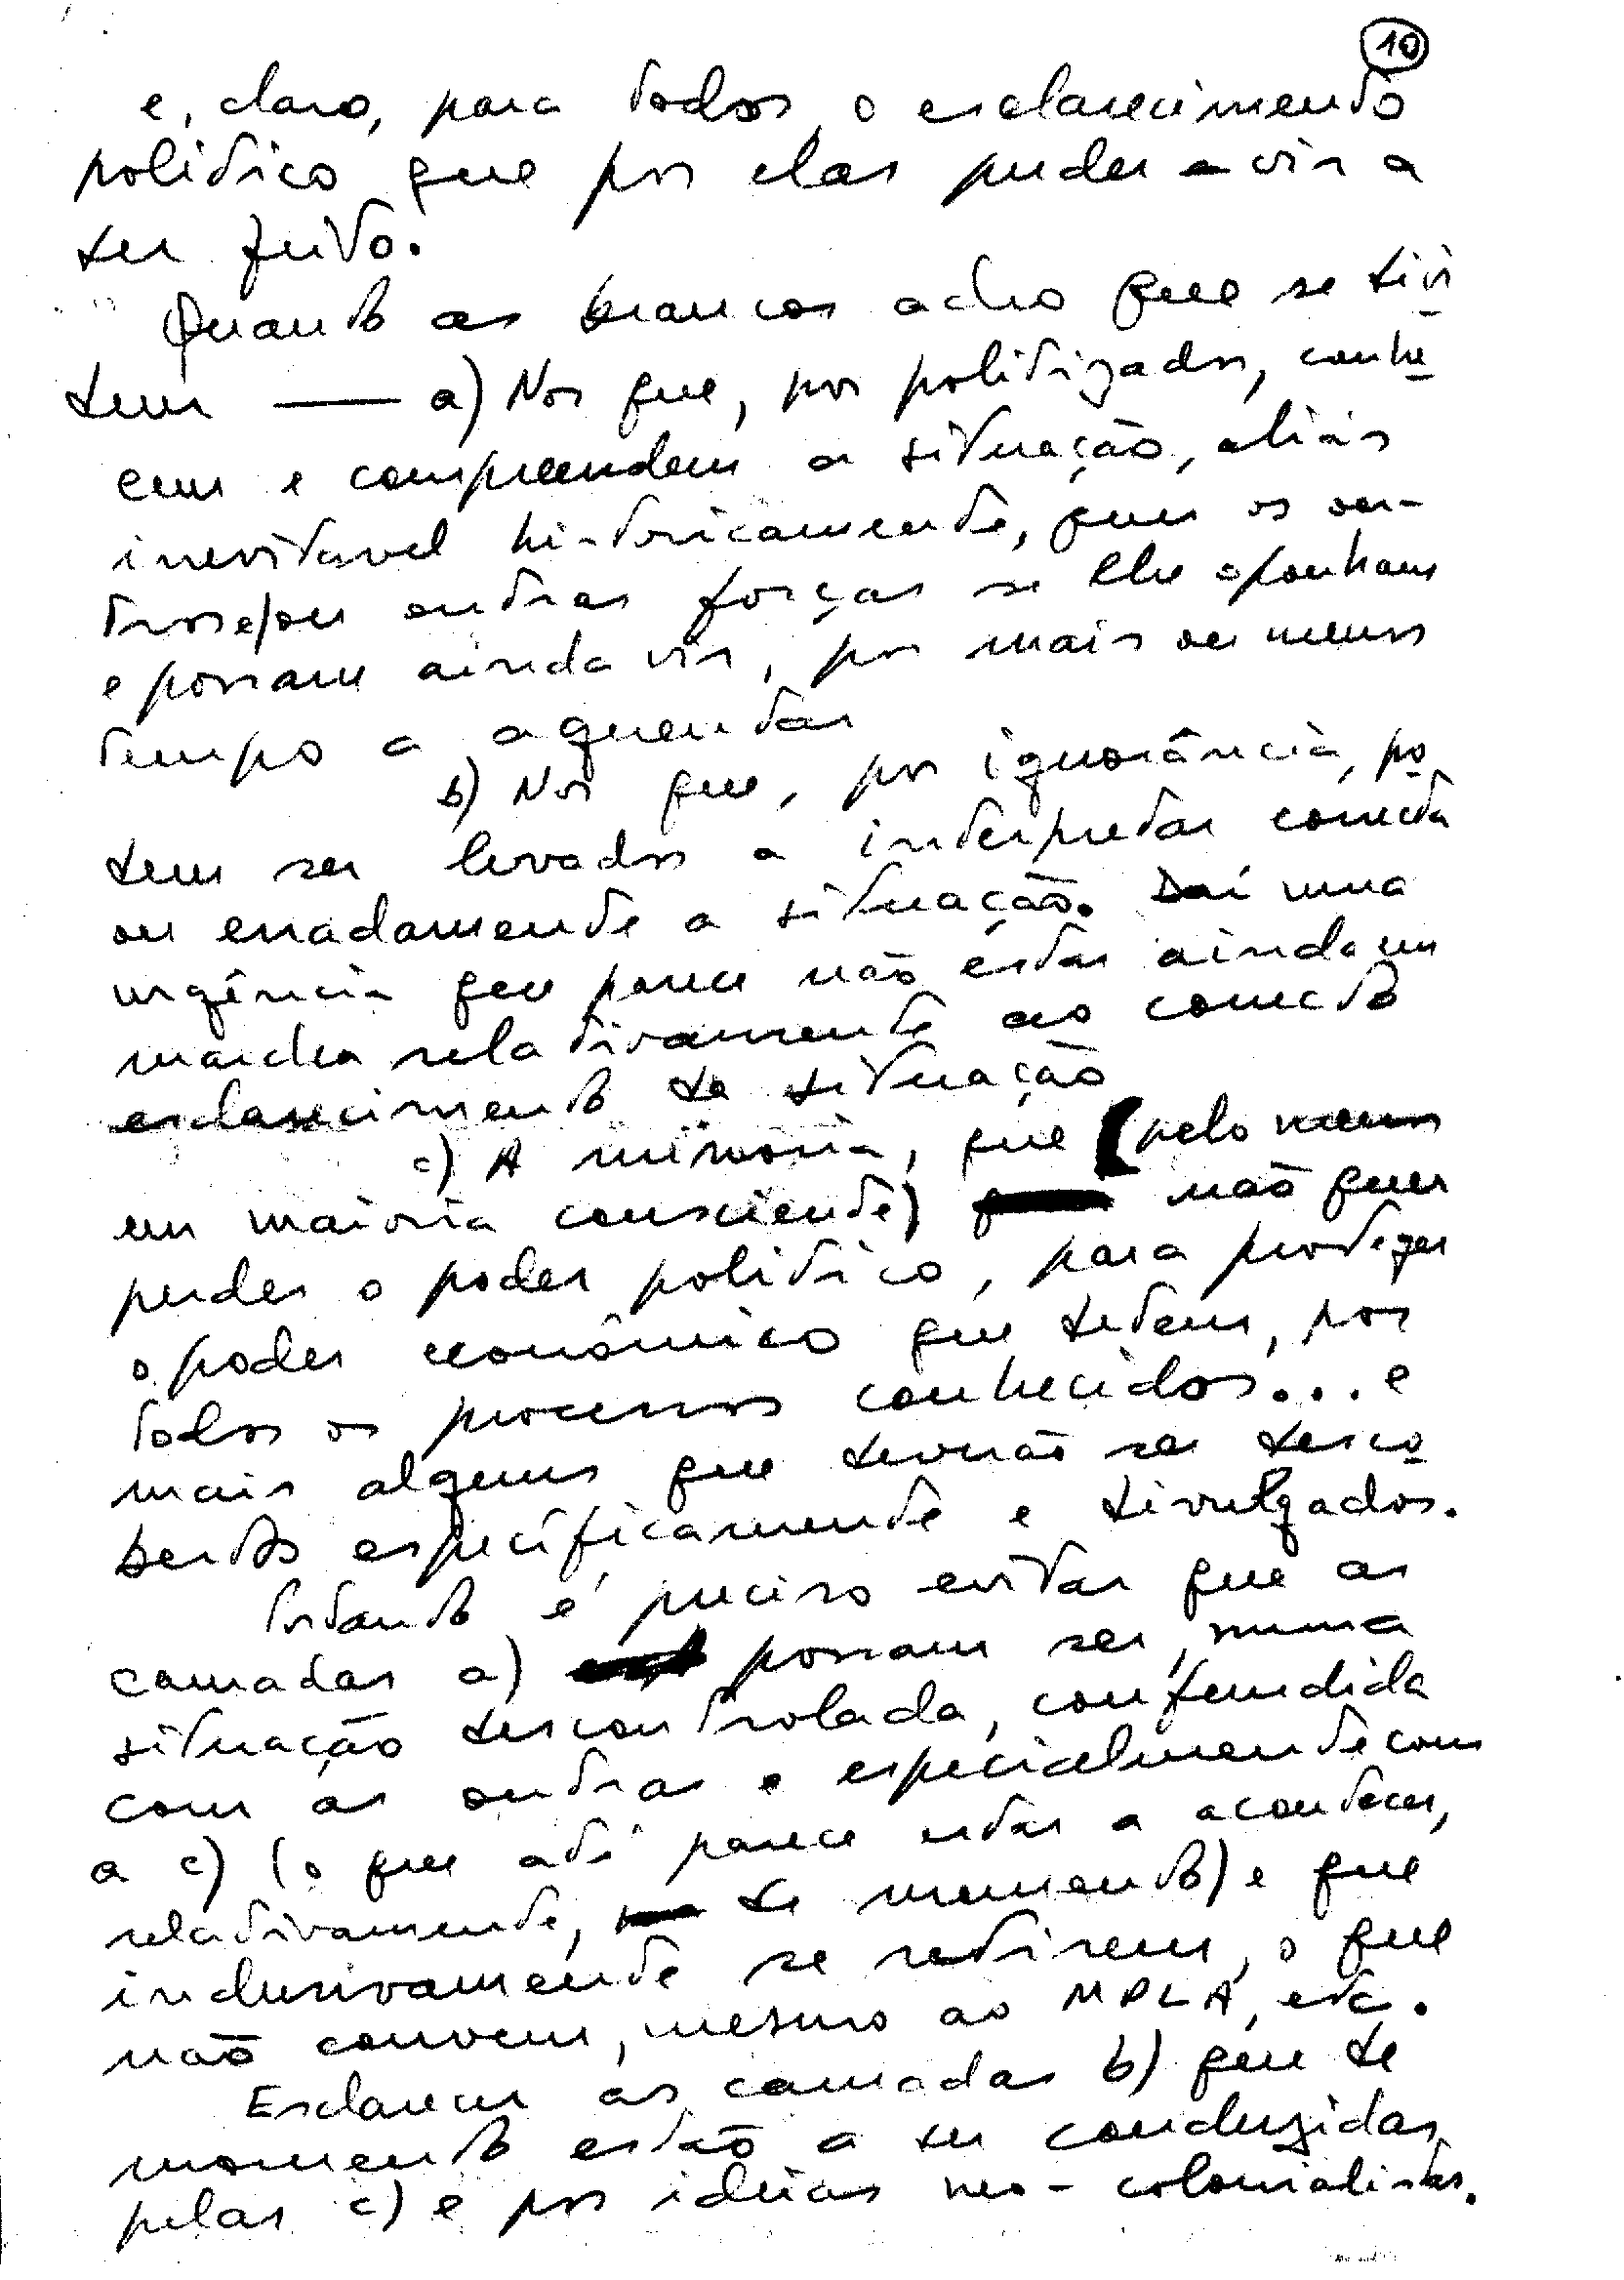 10
e, claro, para todos, o esclarecimento
político que por elas puder vir a
ser feito.
Quanto aos brancos acho que se divi
dem — a) Nos que, por politizados, conhe
cem e compreendem a situação, aliás
inevitavel historicamente, quer os ou-
tros e/ou outras forças se lhe oponham
e possam ainda vir, por mais ou menos
tempo a aguentar
b) Nos que, por ignorância, po
dem ser levados a interpretar correcta
ou erradamente a situação. Daí uma
urgência que parece não estar ainda em
marcha relativamente ao correcto
esclarecimento da situação
c) A minoria, que (pelo menos
em maioria consciente) não quer
perder o poder político, para proteger
o poder económico que detem, por
todos os processos conhecidos... e
mais alguns que deverão ser desco
bertos especificamente e divulgados.
Portanto é preciso evitar que as
camadas a) possam ser, numa
situação descontrolada, confundida
com as outras e especialmente com
a c) (o que até parece estar a acontecer,
relativamente, de momento) e que
inclusivamente se retirem, o que
não convem, mesmo ao MPLA, etc.
Esclarecer as camadas b) que de
momento estão a ser conduzidas
pelas c) e por ideias neo-colonialistas.